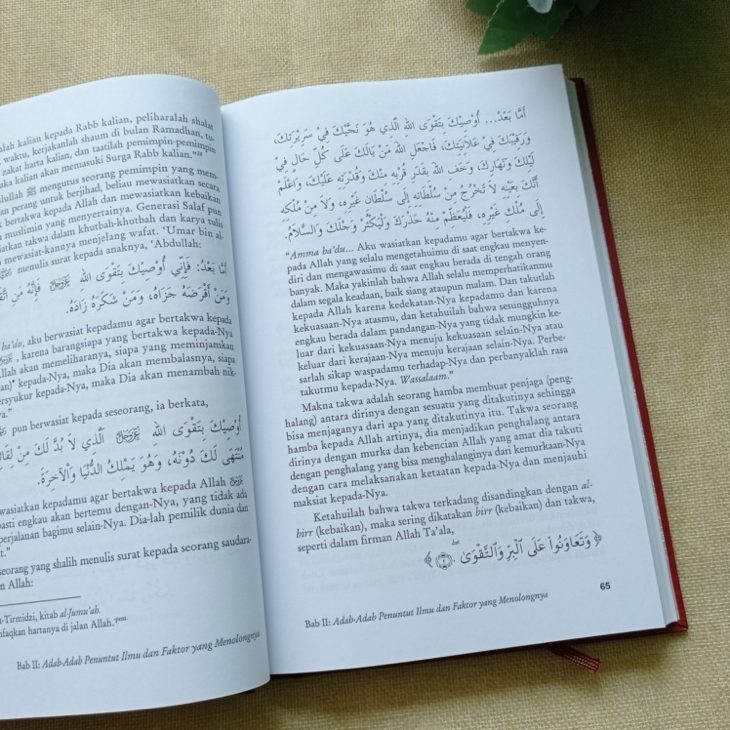 alah kalian kepada Rabb kalian, peliharalah shalat
waktu, kerjakanlah shaum di bulan Ramadhan, tu-
zakat harta kalian, dan taatilah pemimpin-pemimpin
aka kalian akan memasuki Surga Rabb kalian."
lullah ﷺ mengutus seorang pemimpin yang mem-
an perang untuk berjihad, beliau mewasiatkan secara
k bertakwa kepada Allah dan mewasiatkan kebaikan
uslimin yang menyertainya. Generasi Salaf pun
siatkan takwa dalam khutbah-khutbah dan karya tulis
mewasiat-kannya menjelang wafat. 'Umar bin al-
menulis surat kepada anaknya, 'Abdullah:
أَمَّا بَعْدُ: فَإِنِّي أُوْصِيْكَ بِتَقْوَى اللهِ فَإِنَّهُ مَنِ اتَّقَ
وَمَنْ أَقْرَضَهُ جَزَاهُ، وَمَنْ شَكَرَهُ زَادَهُ.
ba'du, aku berwasiat kepadamu agar bertakwa kepada
, karena barangsiapa yang bertakwa kepada-Nya
Allah akan memeliharanya, siapa yang meminjamkan
an)* kepada-Nya, maka Dia akan membalasnya, siapa
ersyukur kepada-Nya, maka Dia akan menambah nik-
ya."
pun berwasiat kepada seseorang, ia berkata,
أُوْصِيْكَ بِتَقْوَى اللهِ الَّذِي لَا بُدَّ لَكَ مِنْ لِقَا
مُنْتَهَى لَكَ دُوْنَهُ، وَهُوَ يَمْلِكُ الدُّنْيَا وَالْآخِرَةَ.
wasiatkan kepadamu agar bertakwa kepada Allah
pasti engkau akan bertemu dengan-Nya, yang tidak ada
perjalanan bagimu selain-Nya. Dia-lah pemilik dunia dan
t."
seorang yang shalih menulis surat kepada seorang saudara-
n Allah:
t-Tirmidzi, kitab al-Jumu'ah.
nfaqkan hartanya di jalan Allah.
Bab II: Adab-Adab Penuntut Ilmu dan Faktor yang Menolongnya
أَمَّا بَعْدُ... أُوْصِيْكَ بِتَقْوَى اللهِ الَّذِي هُوَ نَجِيُّكَ فِيْ سَرِيْرَتِكَ،
وَرَقِيْبُكَ فِيْ عَلَانِيَتِكَ، فَاجْعَلِ اللهَ مِنْ بَالِكَ عَلَى كُلِّ حَالٍ فِيْ
لَيْلِكَ وَنَهَارِكَ، وَخَفِ اللهَ بِقَدَرِ قُرْبِهِ مِنْكَ وَقُدْرَتِهِ عَلَيْكَ، وَاعْلَمْ
أَنَّكَ بِعَيْنِهِ لَا تَخْرُجُ مِنْ سُلْطَانِهِ إِلَى سُلْطَانِ غَيْرِهِ، وَلَا مِنْ مُلْكِهِ
إِلَى مُلْكِ غَيْرِهِ، فَلْيَعْظُمْ مِنْهُ حَذَرُكَ وَلْيَكْثُرْ وَجَلُكَ وَالسَّلَامُ.
"Amma ba'du... Aku wasiatkan kepadamu agar bertakwa ke-
pada Allah yang selalu mengetahuimu di saat engkau menyen-
diri dan mengawasimu di saat engkau berada di tengah orang
banyak. Maka yakinlah bahwa Allah selalu memperhatikanmu
dalam segala keadaan, baik siang ataupun malam. Dan takutlah
kepada Allah karena kedekatan-Nya kepadamu dan karena
kekuasaan-Nya atasmu, dan ketahuilah bahwa sesungguhnya
engkau berada dalam pandangan-Nya yang tidak mungkin ke-
luar dari kekuasaan-Nya menuju kekuasaan selain-Nya atau
keluar dari kerajaan-Nya menuju kerajaan selain-Nya. Perbe-
sarlah sikap waspadamu terhadap-Nya dan perbanyaklah rasa
takutmu kepada-Nya. Wassalaam."
Makna takwa adalah seorang hamba membuat penjaga (peng-
halang) antara dirinya dengan sesuatu yang ditakutinya sehingga
bisa menjaganya dari apa yang ditakutinya itu. Takwa seorang
hamba kepada Allah artinya, dia menjadikan penghalang antara
dirinya dengan murka dan kebencian Allah yang amat dia takuti
dengan penghalang yang bisa menghalanginya dari kemurkaan-Nya
dengan cara melaksanakan ketaatan kepada-Nya dan menjauhi
maksiat kepada-Nya.
Ketahuilah bahwa takwa terkadang disandingkan dengan al-
birr (kebaikan), maka sering dikatakan birr (kebaikan) dan takwa,
seperti dalam firman Allah Ta'ala,
﴿ وَتَعَاوَنُوا عَلَى الْبِرِّ وَالتَّقْوَىٰ ﴾
65
Bab II: Adab-Adab Penuntut Ilmu dan Faktor yang Menolongnya